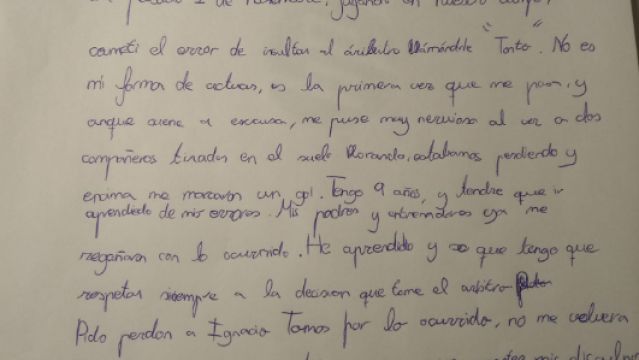 pasado 1 de noviembre, jugando en nuestro campo,
cometi el error de insultar al árbitro llámandole "Tonto". No es
mi forma de actuar, es la primera vez que me pasa, y
aunque suene a escusa, me puse muy nervioso al ver a dos
compañeros tirados en el suelo llorando, estabamos perdiendo y
encima me marcaron un gol. Tengo 9 años, y tendre que ir
aprendiedo de mis errores. Mis padres y entrenadores ya me
regañaron con lo ocurrido. He aprendido y se que tengo que
respetar siempre a la decision que tome el arbitro
Pido perdon a Ignacio Tomos por lo ocurrido, no me volvera
mis disculpas